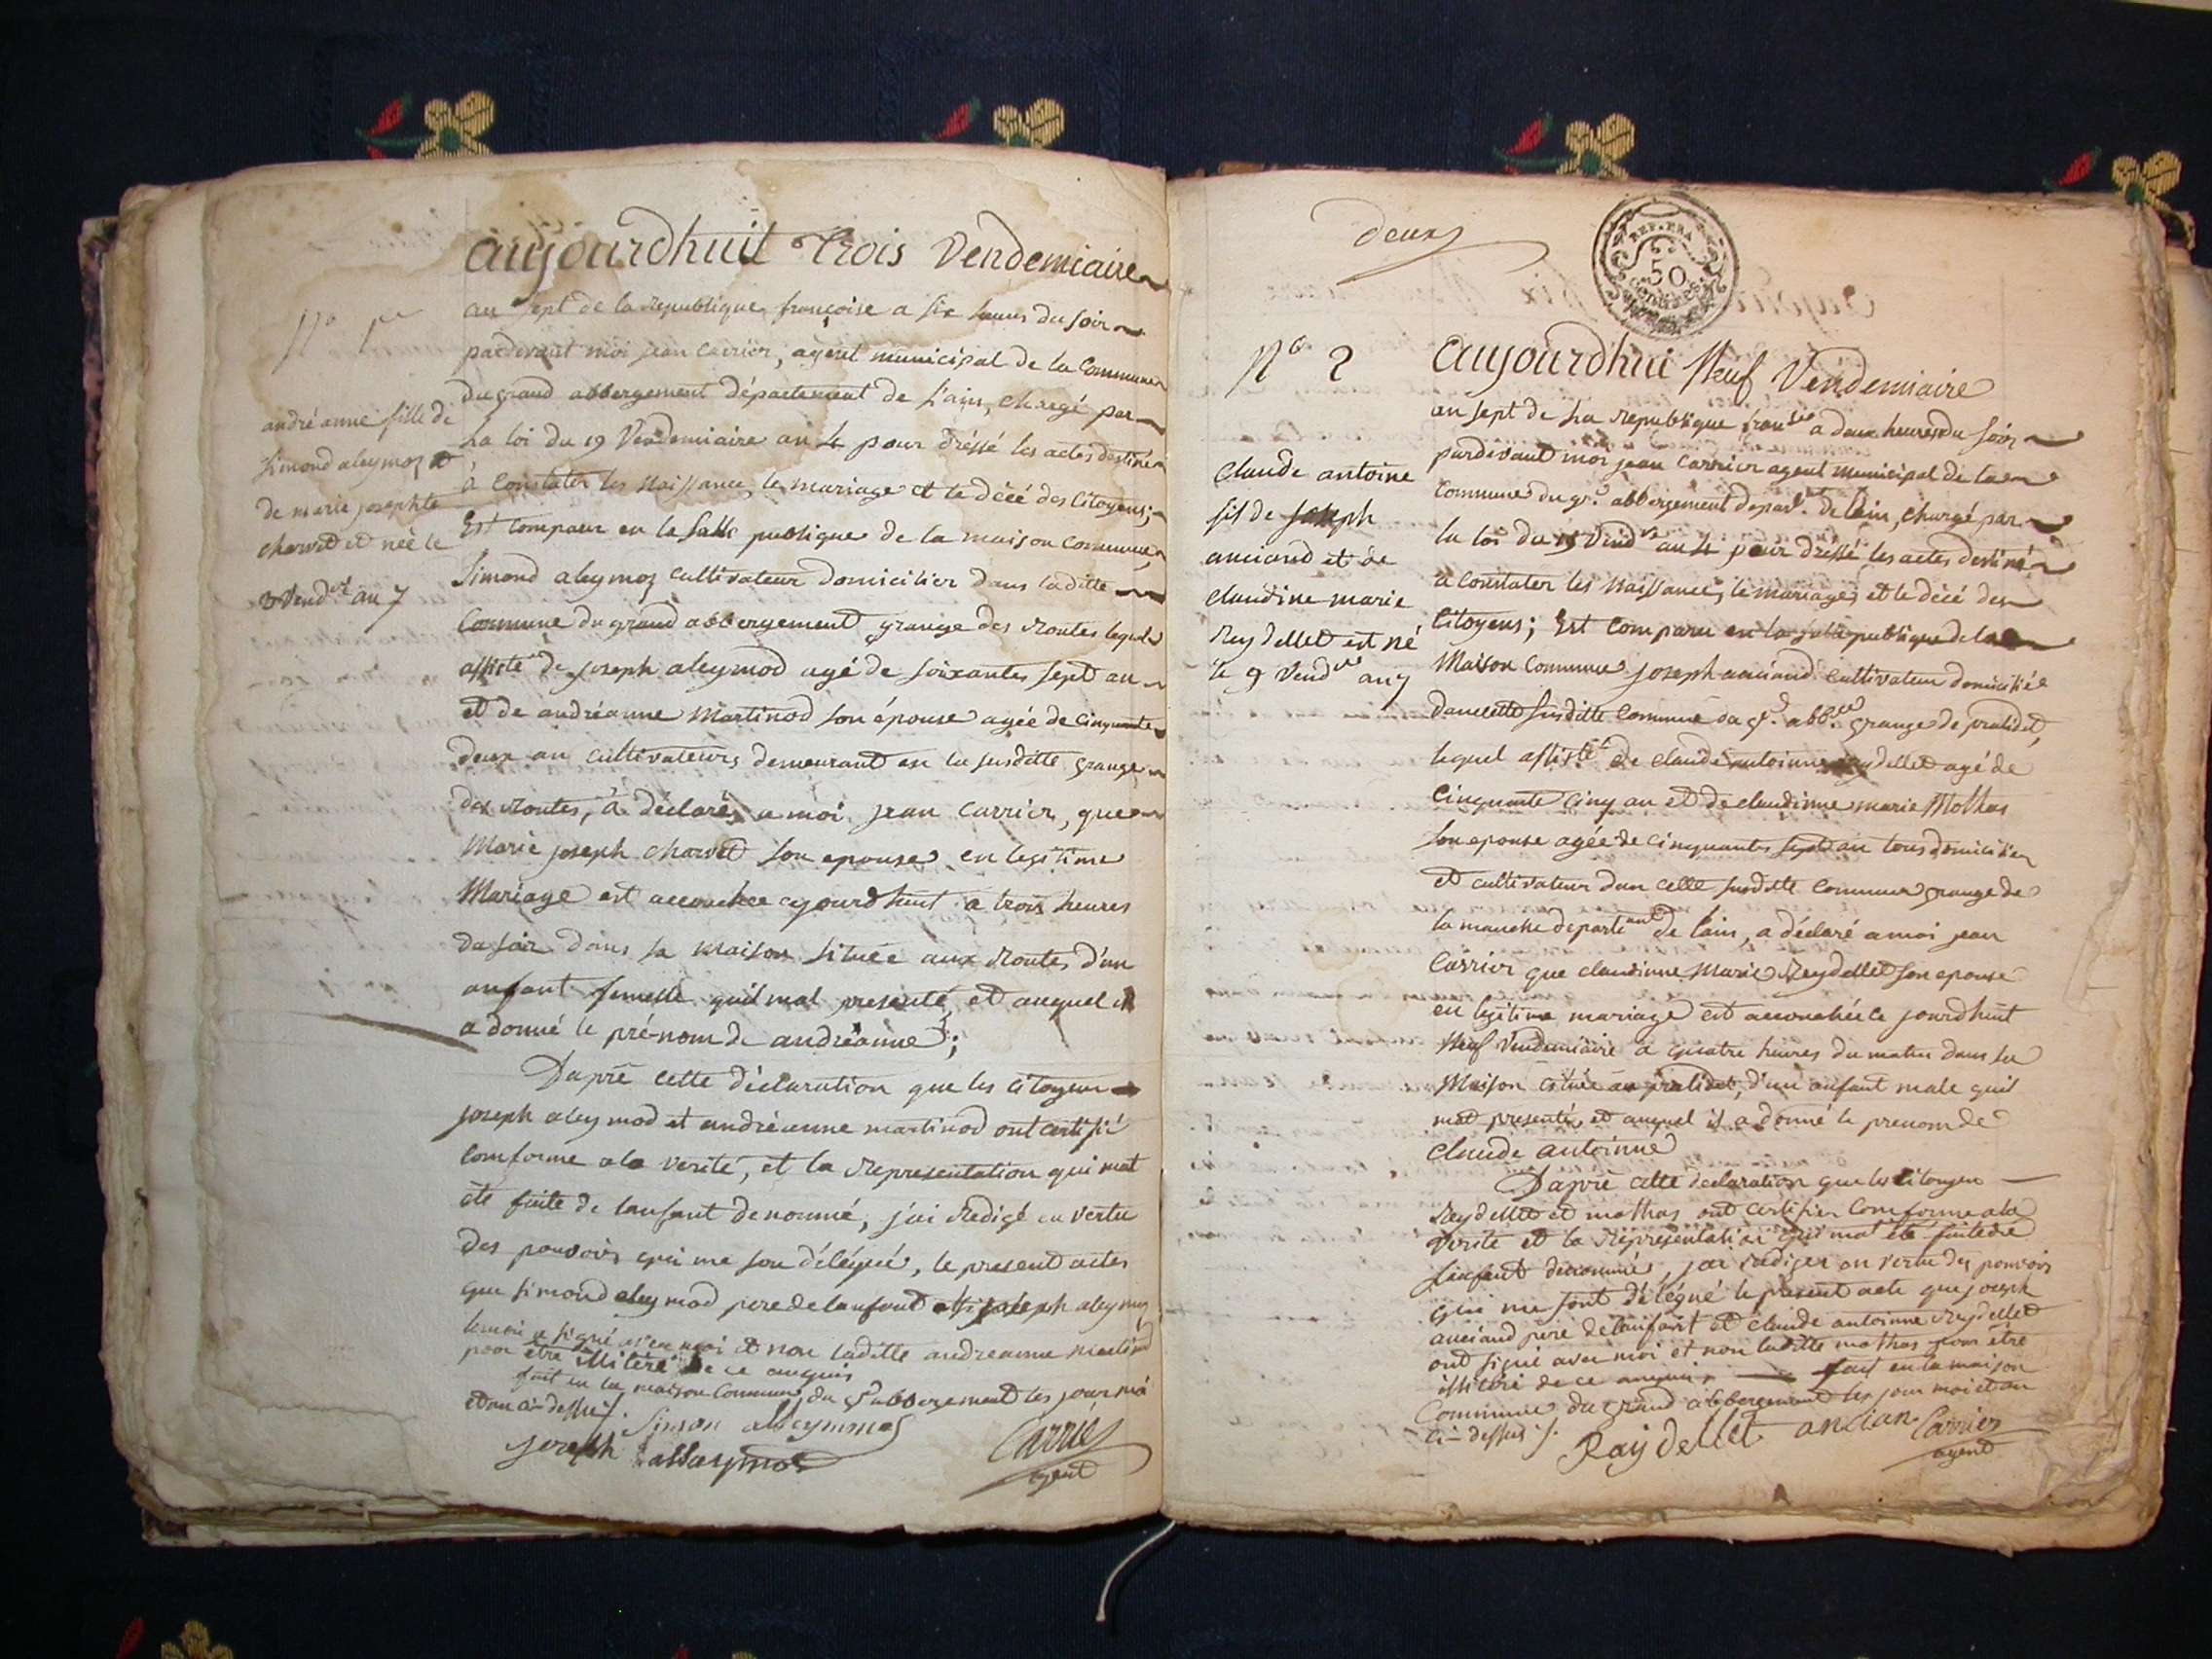 aujourdhuit trois Vendemiaire
au Sept de la republique françoise a six heures du soir
pardevant moi jean carrier, agent municipal de la Commune
du grand abbergement département de l'ain, chargé par
La loi du 19 Vendemiaire an 4 pour dréssé les actes destiné
à Constater les Naissance, le mariage et le décé des Citoyens;
Est comparu en la salle publique de la maison commune,
Simond aleymoz cultivateur domicilier dans laditte
Commune du grand abbergement grange des Routes lequel
assisté de joseph aleymod agé de soixantes sept an
et de andréanne Martinod son épouse agée de Cinquante
deux an cultivateurs demeurant en la susditte grange
des Routes, à déclaré a moi jean carrier, que
Marie joseph charvet son epouse en legitime
Mariage est accouchee ajourdhuit a trois heures
du soir dans sa maison située aux Routes d'un
anfant femelle quil mat presenté, et auquel il
a donné le pré-nom de andréanne;
Daprè cette déclaration que les citoyen
joseph aleymod et andréanne martinod ont certifié
comforme a la verité, et la Representation qui mat
été faite de lanfant denommé, j'ai Redigé en vertu
des pouvoirs qui me son délégué, le present actes
que simond aleymod pere de lanfant et joseph aleymoz
temoin a signé avec moi et non laditte andreanne martinod
pour être illitéré de ce anquis
fait en la maison Commune du gd abbergement les jour moi
et an ci-dessus.
Simon alleymmos
joseph allaymod
Carrier
agent
No 1er
andréanne fille de
simond aleymoz et
de marie josephte
charvet et née le
3 Vendre an 7
deux
REP. FRA
50
CENTIMES
No 2
aujourdhui Neuf Vendemiaire
an sept de La republique franse a deux heures du soir
pardevant moi jean Carrier agent municipal de la
Commune du gd abbergement depart. de lain, chargé par
la loi du 19 Vendre an 4 pour dressé les actes destiné
a constater les Naissances, le mariages et le décé des
Citoyens; Est comparu en la salle publique de la
Maison Commune joseph anciand cultivateur domicilié
dancette susditte commune du gd abbt grange de pralidet,
lequel assisté de claude antoinne reydellet agé de
cinquante cinq an et de claudinne marie Mathas
son epouse agée de cinquantes sept an tous domicilier
et cultivateur dan celle susditte commune grange de
la manche departemant de lain, a déclaré a moi jean
Carrier que claudinne Marie Reydellet son epouse
en legitime mariage est accouchée ce jourdhuit
Neuf Vendemiaire a quatre heures du matin dans sa
Maison cituée au pralidet, d'un anfant male quil
mat presenté, et auquel il a donné le prenom de
claude antoinne
Daprè cette declaration que les citoyen
Reydellet et mathas ont certifier comforme a la
verité et la Représentation qui mat été faite de
lanfant denommé, jai rediger en vertu des pouvoirs
qui me sont délégué le present acte que joseph
anciand pere de lanfant et claude antoinne Reydellet
ont signé avec moi et non laditte mathas pour etre
illitéré de ce anquis fait en la maison
Commune du grand abbergement les jour moi et an
ci-dessus.
Raydellet ancian Carrier
agent
claude antoine
fil de joseph
anciand et de
claudine marie
Reydellet est né
le 9 Vendre an 7